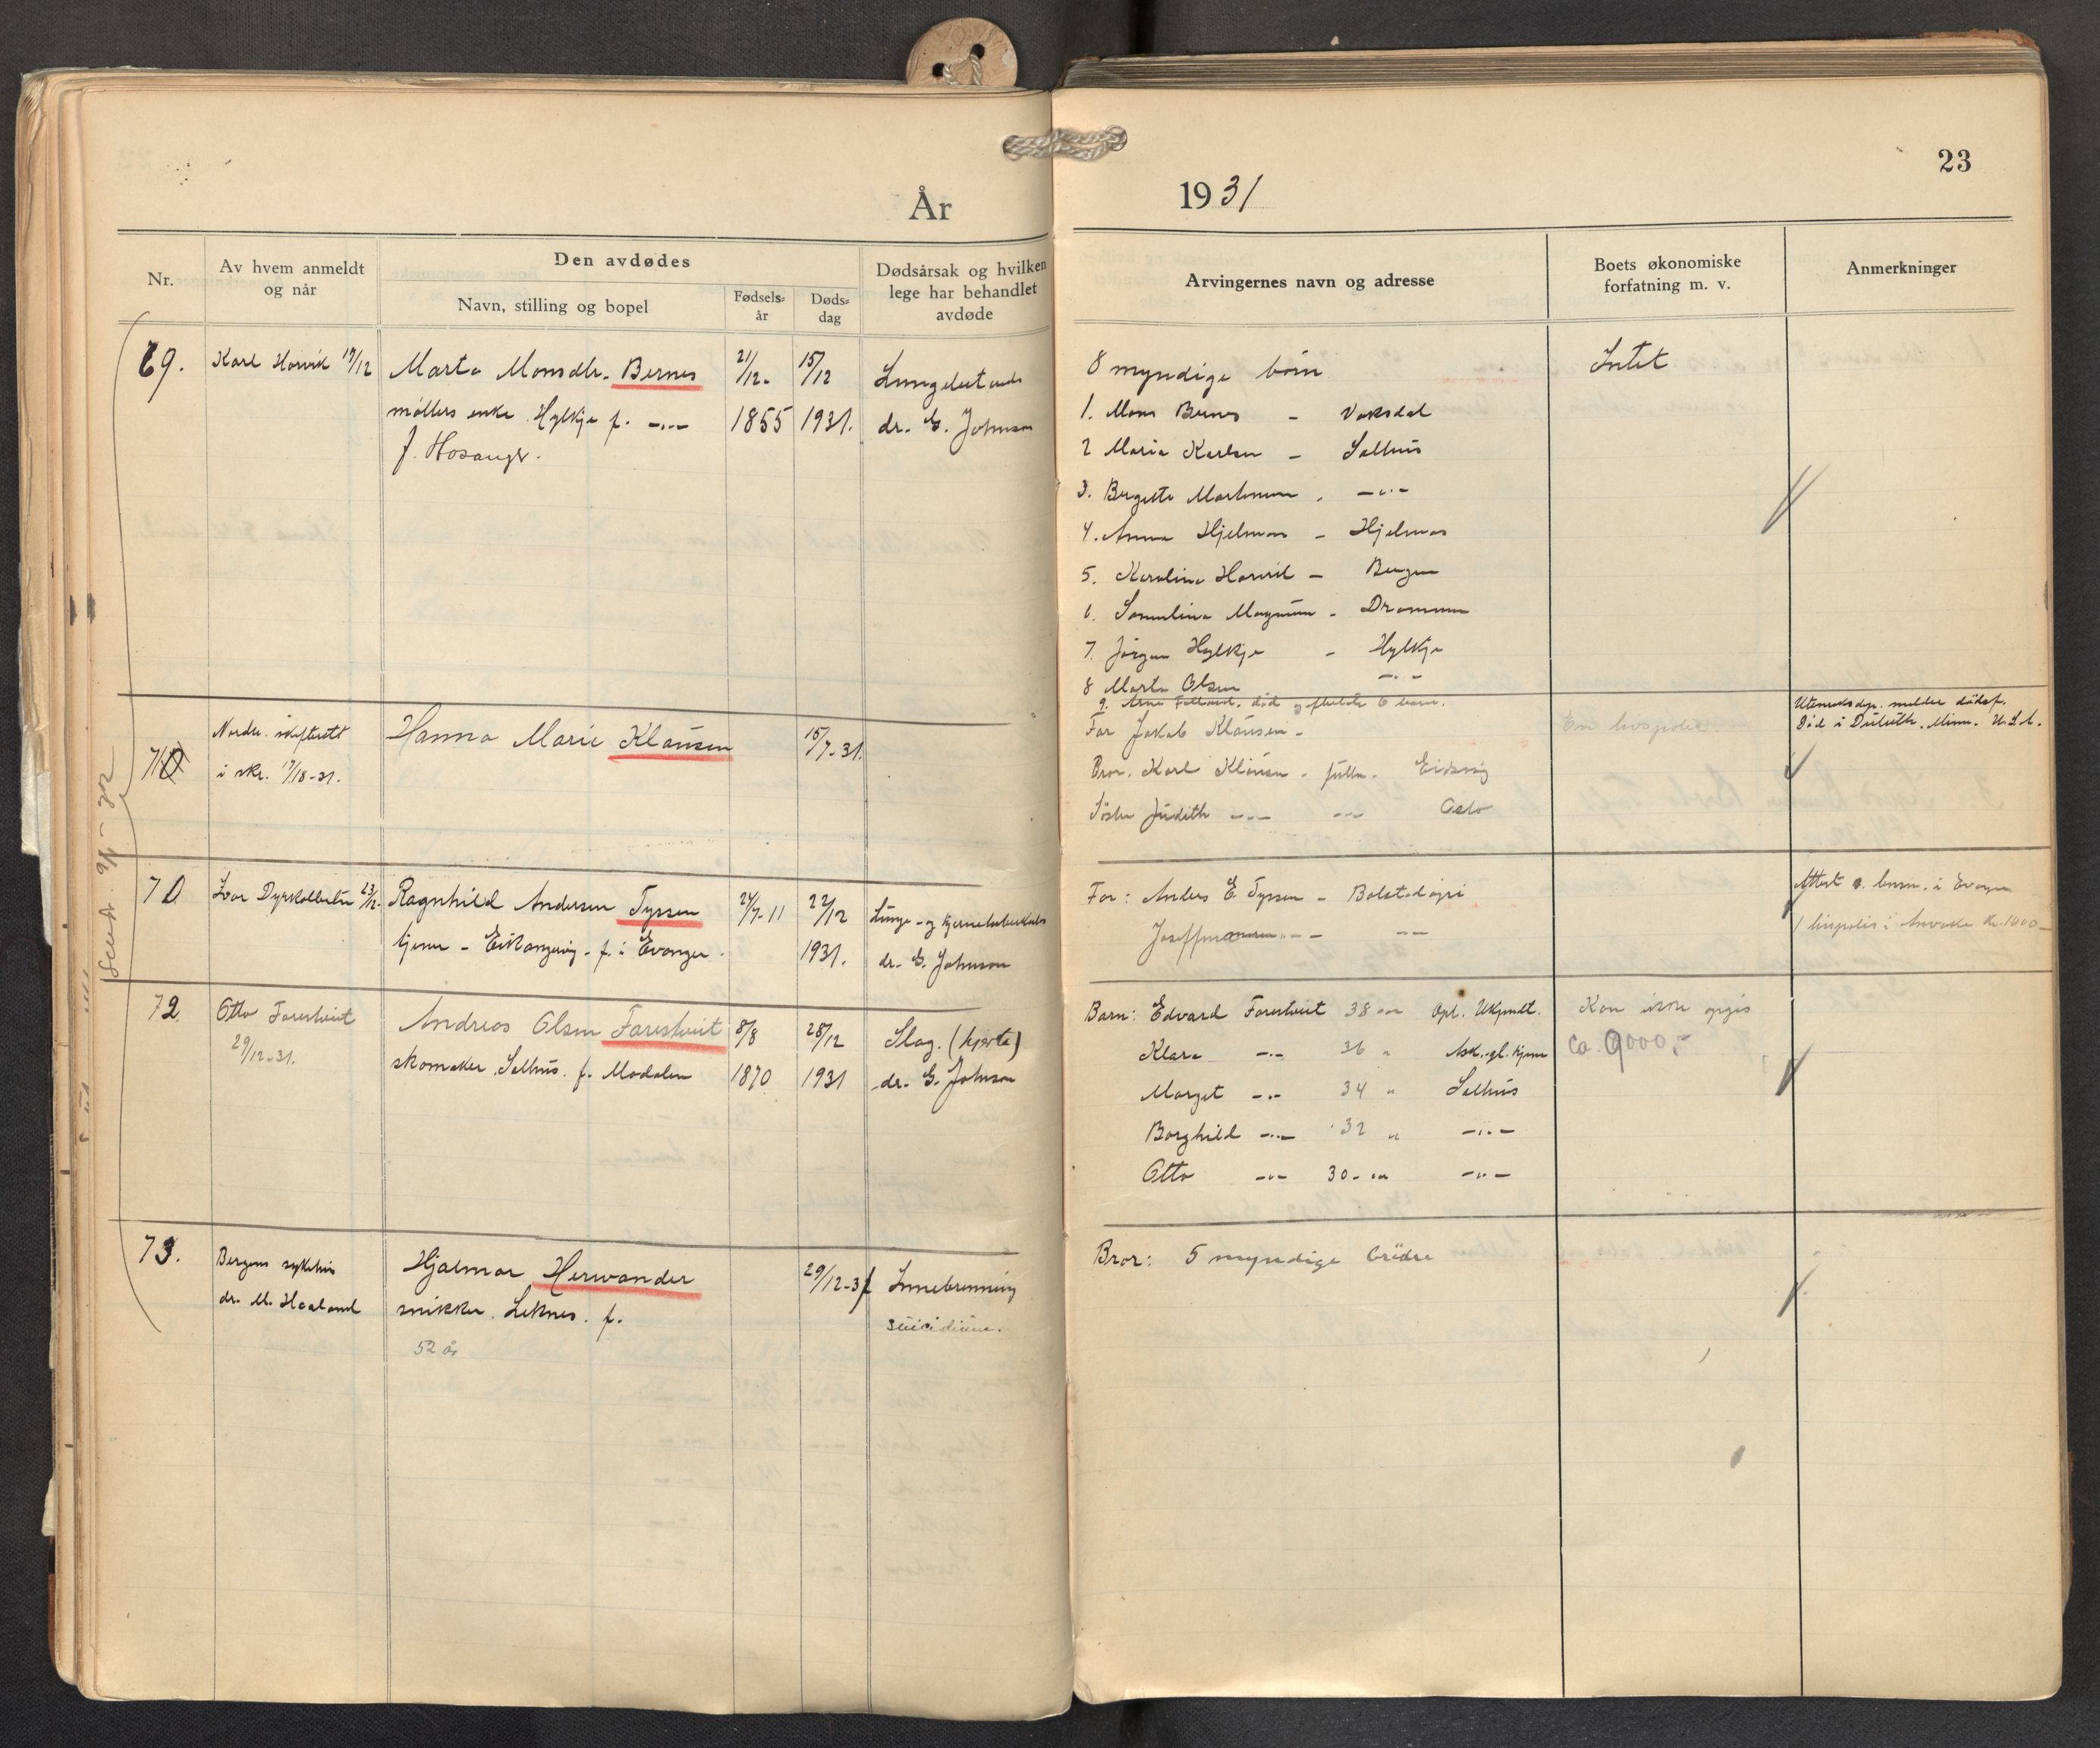 År
1931
23
Nr.
Av hvem anmeldt og når
Den avdødes
Navn, stilling og bopel
Fødsels-år
Døds-dag
Dødsårsak og hvilken lege har behandlet avdøde
Arvingernes navn og adresse
Boets økonomiske forfatning m. v.
Anmerkninger
69. Karl Horvik 17/12
Marta Monsdtr. Bernes
møllers enke. Hylkje f. -"-
f. Hosangr.
21/12. 1855
15/12 1931.
dr. G. Johnson
8 myndige børn
1. Mons Bernes - Vaksdal
2 Maria Karlsen - Salhus
3. Bergitte -"-
4. Anna Hjelmås - Hjelmås
5. Karolina Horvik - Bergen
6. Magnussen - Drammen
7. Jørgen Hylkje - Hylkje
8 Marta Olsen -"-
9. Arne død 6 barn.
Intet
Nordre skifterett
i skr. 17/18-31.
Hanna Marie Klausen
15/7-31.
Far Jakob Klausen -
Bror. Karl Klausen - fullm. Eidsvåg
Søster Judith -"- -"- Oslo
En livspolise
melder dødsf.
Død i Duluth. Minn. U.S.A.
Ivar Dyrkolbotn 23/12.
Ragnhild Andersen Tyssen
tjener - Eikangervåg - f. i Evanger.
24/7-11
22/12 1931.
Lunge- og
dr. G. Johnson
Far: Anders E. Tyssen - Bolstadøyri
-"- -"-
Attest i Evanger
1 livspolis i kr. 1000-
72. Otto Farestveit
29/12-31.
Andreas Olsen Farestveit
skomaker, Salhus. f. Modalen
8/8 1870
28/12 1931
Slag. (hjerte)
dr. G. Johnson
Barn: Edvard Farestveit 38 år
Klara -"- 36 "
Marget -"- 34 " Salhus
Borghild -"- 32 " -"-
Otto -"- 30 - år -"-
Kan ikke opgis
ca. 9000,-
73. Bergens sykehus
dr. M. Haaland
Hjalmar Herwander
snikker. Leknes. f.
52 år
29/12-31
Innebrenning
suicidium.
Bror: 5 myndige brødre